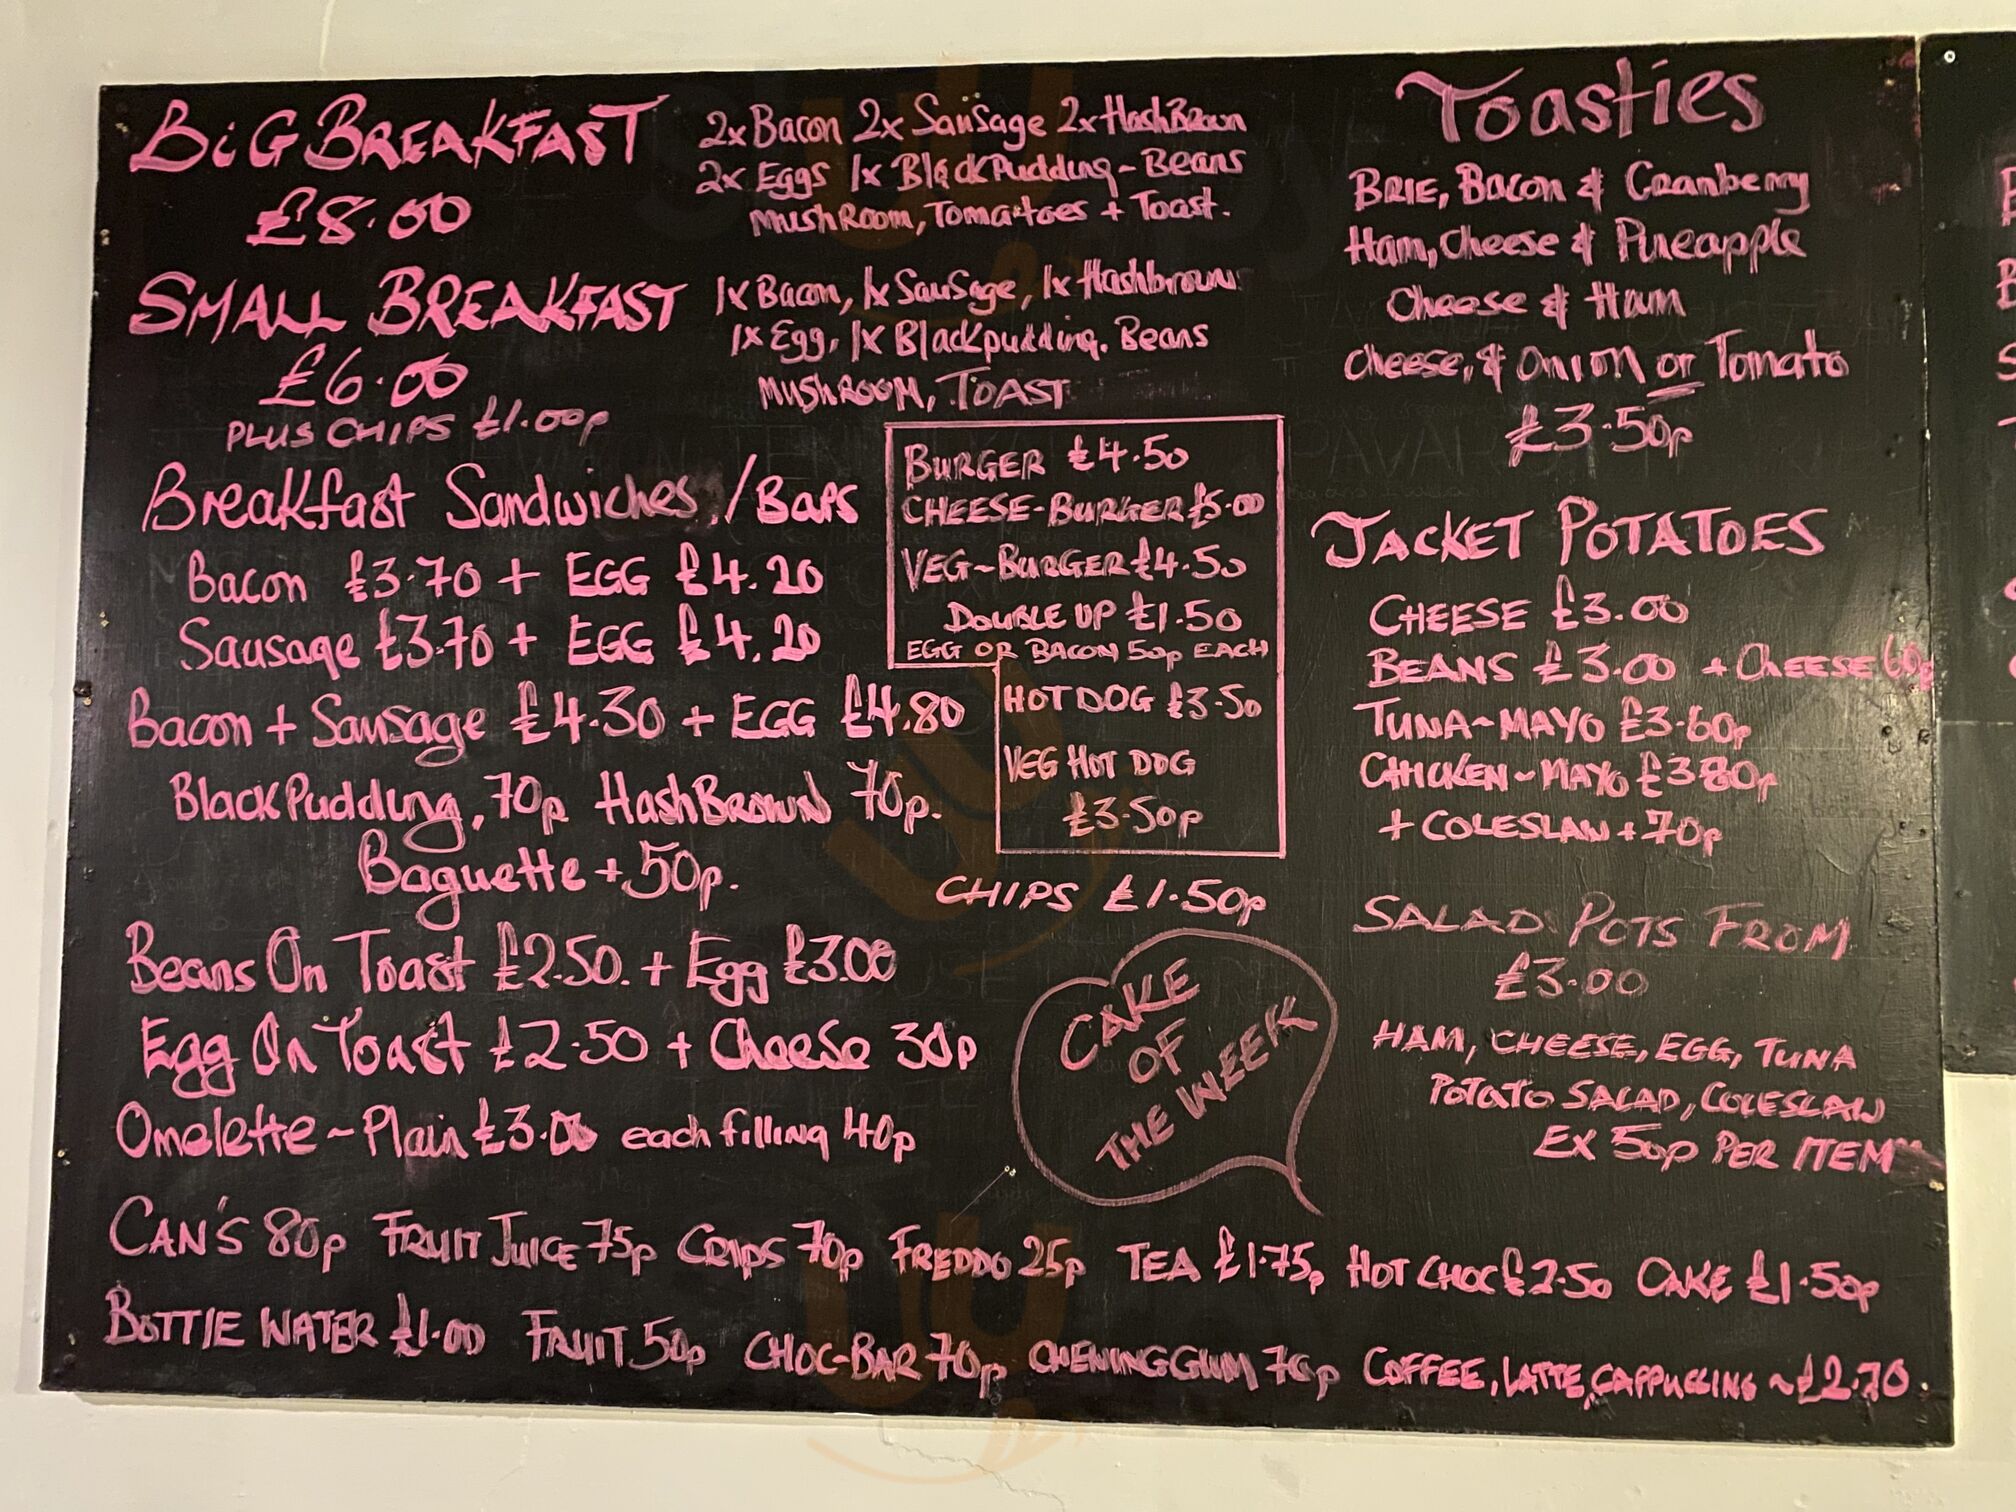 BiG BREAKFAST
£8.00
2x Bacon 2x Sausage 2x HashBrown
2x Eggs 1x Black Pudding - Beans
MushRoom, Tomatoes + Toast.
SMALL BREAKFAST
£6.00
PLUS CHIPS £1.00p
1x Bacon, 1x Sausage, 1x Hashbrown
1x Egg, 1x Blackpudding. Beans
MUSHROOM, TOAST
Breakfast Sandwiches / BAPS
Bacon £3.70 + EGG £4.20
Sausage £3.70 + EGG £4.20
Bacon + Sausage £4.30 + EGG £4.80
Black Pudding, 70p HashBrown 70p.
Baguette + 50p.
Beans On Toast £2.50. + Egg £3.00
Egg On Toast £2.50 + Cheese 30p
Omelette ~ Plain £3.00 each filling 40p
BURGER £4.50
CHEESE-BURGER £5.00
VEG~BURGER £4.50
DOUBLE UP £1.50
EGG OR BACON 50p EACH
HOT DOG £3.50
VEG HOT DOG
£3.50p
CHIPS £1.50p
CAKE
OF
THE WEEK
Toasties
BRIE, Bacon & Cranberry
Ham, Cheese & Pineapple
Cheese & Ham
Cheese, & Onion or Tomato
£3.50p
JACKET POTATOES
CHEESE £3.00
BEANS £3.00 + CHEESE 60p
TUNA~MAYO £3.60p
CHICKEN~MAYO £3.80p
+ COLESLAW + 70p
SALAD POTS FROM
£3.00
HAM, CHEESE, EGG, TUNA
POTATO SALAD, COLESLAW
EX 50p PER ITEM
CAN'S 80p FRUIT JUICE 75p CRIPS 70p FREDDO 25p TEA £1.75p HOT CHOC £2.50 CAKE £1.50p
BOTTLE WATER £1.00 FRUIT 50p CHOC-BAR 70p CHEWINGGUM 70p COFFEE, LATTE, CAPPUCCINO ~ £2.70